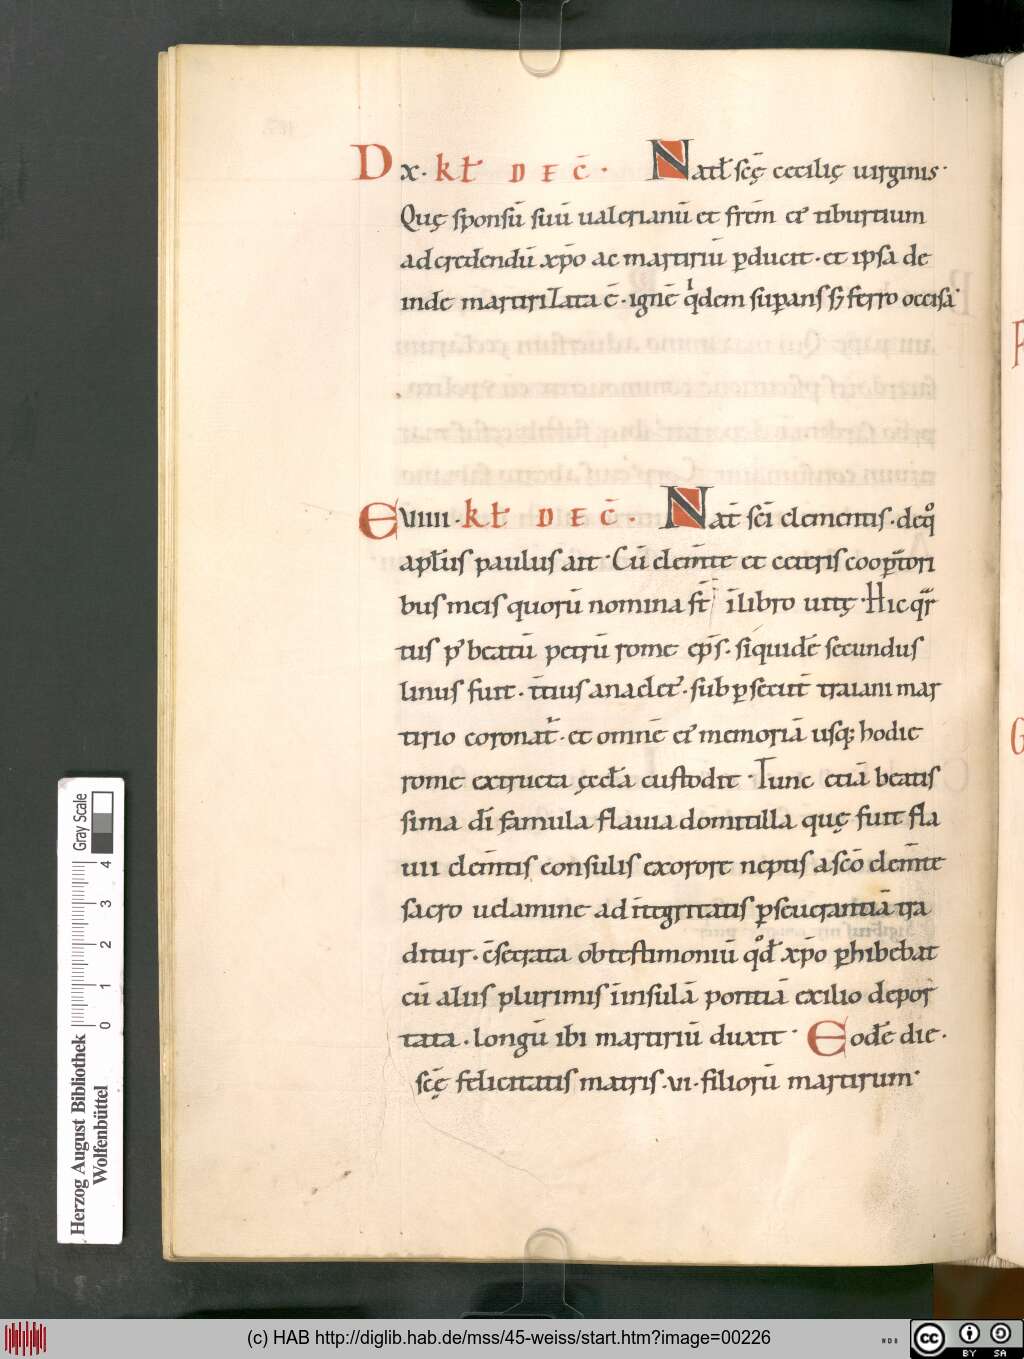 D x. kł DEC̄. Natł scę̄ cecilię uirginis.
Quę sponsū suū ualerianū et frēm eꝰ tiburtium
ad credendū xp̄o ac martiriū ꝑducit. et ipsa de
inde martirizata ē. ignē qͥdem suꝑans sꝫ ferro occisa.
E VIIII. kł DEC̄. Nat̄ scī clementis. deqͦ
apłus paulus ait. Cū clem̄te et ceteris cooꝑatori
bus meis quorū nomina st̄ īlibro uitę. Hic qr̄
tus p̉ beatū petrū rome ep̄s. siquidē secundus
linus fuit. t̄tius anacletꝰ. sub ꝑsecut̄ traiani mar
tirio coronat̄. et omnē eꝰ memoriā usqꝫ hodie
rome extructa ęcctła custodit. Tunc etiā beatis
sima dī famula flauia domitilla quę fuit fla
uii clem̄tis consulis exorore neptis a sc̄o clem̄te
sacro uelamine ad īteg̅ritatis ꝑseuerantiā tra
ditur. c̄secrata ob testimoniū qͦd xp̄o ꝑhibebat
cū aliis plurimis īinsulā pontiā exilio depor
tata. longū ibi martiriū duxit. Eodē die.
scę̄ felicitatis matris. VI. filiorū martirum.
Gray Scale
0 1 2 3 4
Herzog August Bibliothek
Wolfenbüttel
(c) HAB http://diglib.hab.de/mss/45-weiss/start.htm?image=00226
cc BY SA